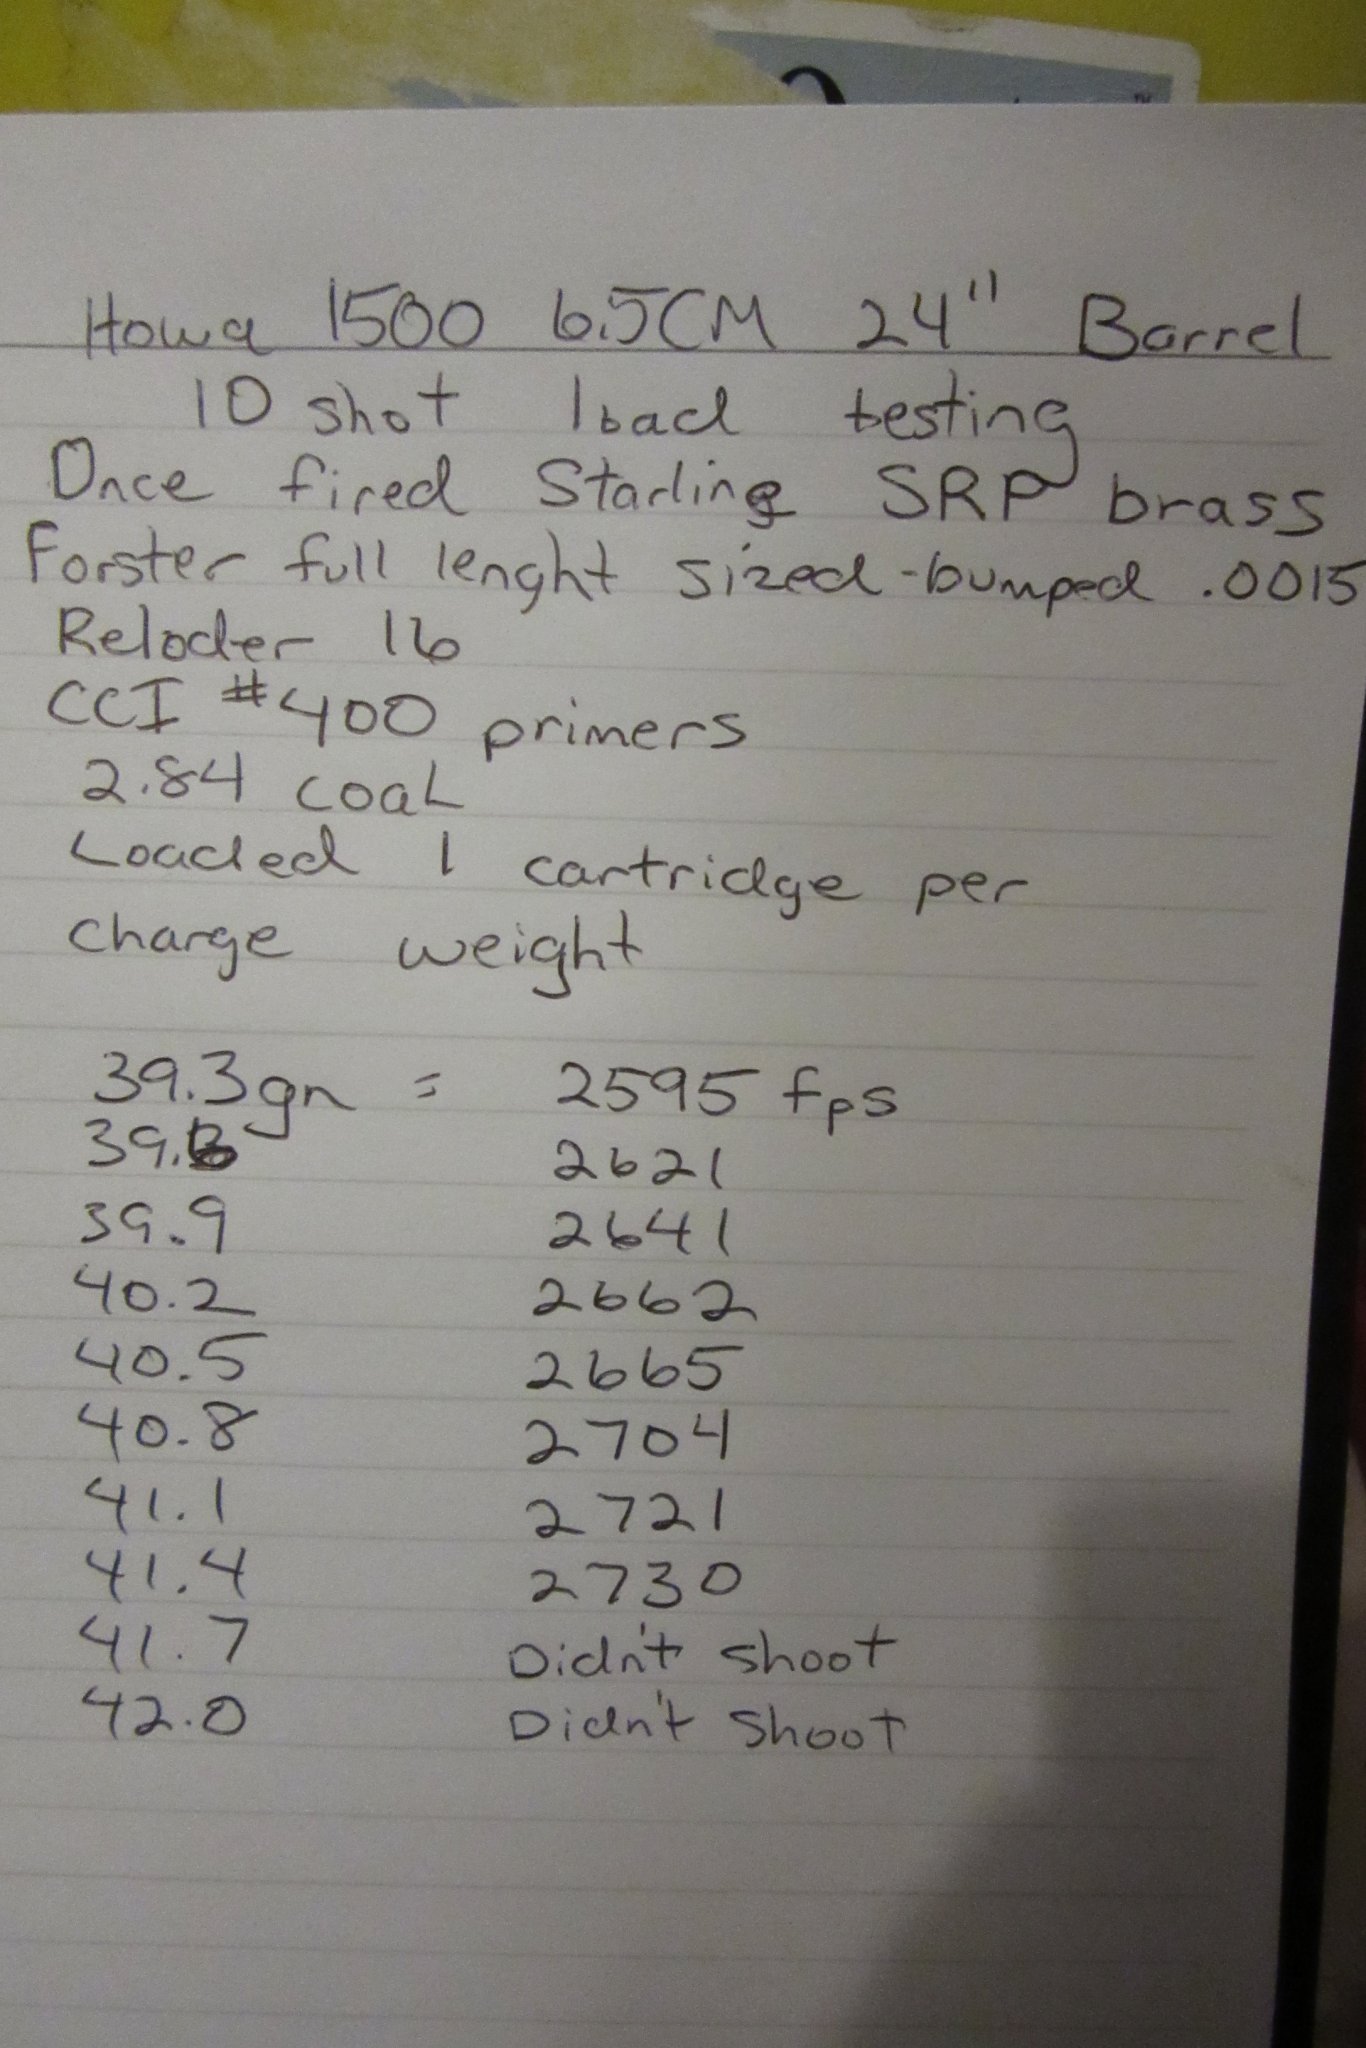 TM
Howa 1500 6.5CM 24" Barrel
10 shot load testing
Once fired Starline SRP brass
Forster full lenght sized-bumped .0015
Reloder 16
CCI #400 primers
2.84 coal
Loaded 1 cartridge per
charge weight
39.3gn = 2595 fps
39.6 2621
39.9 2641
40.2 2662
40.5 2665
40.8 2704
41.1 2721
41.4 2730
41.7 Didn't shoot
42.0 Didn't shoot